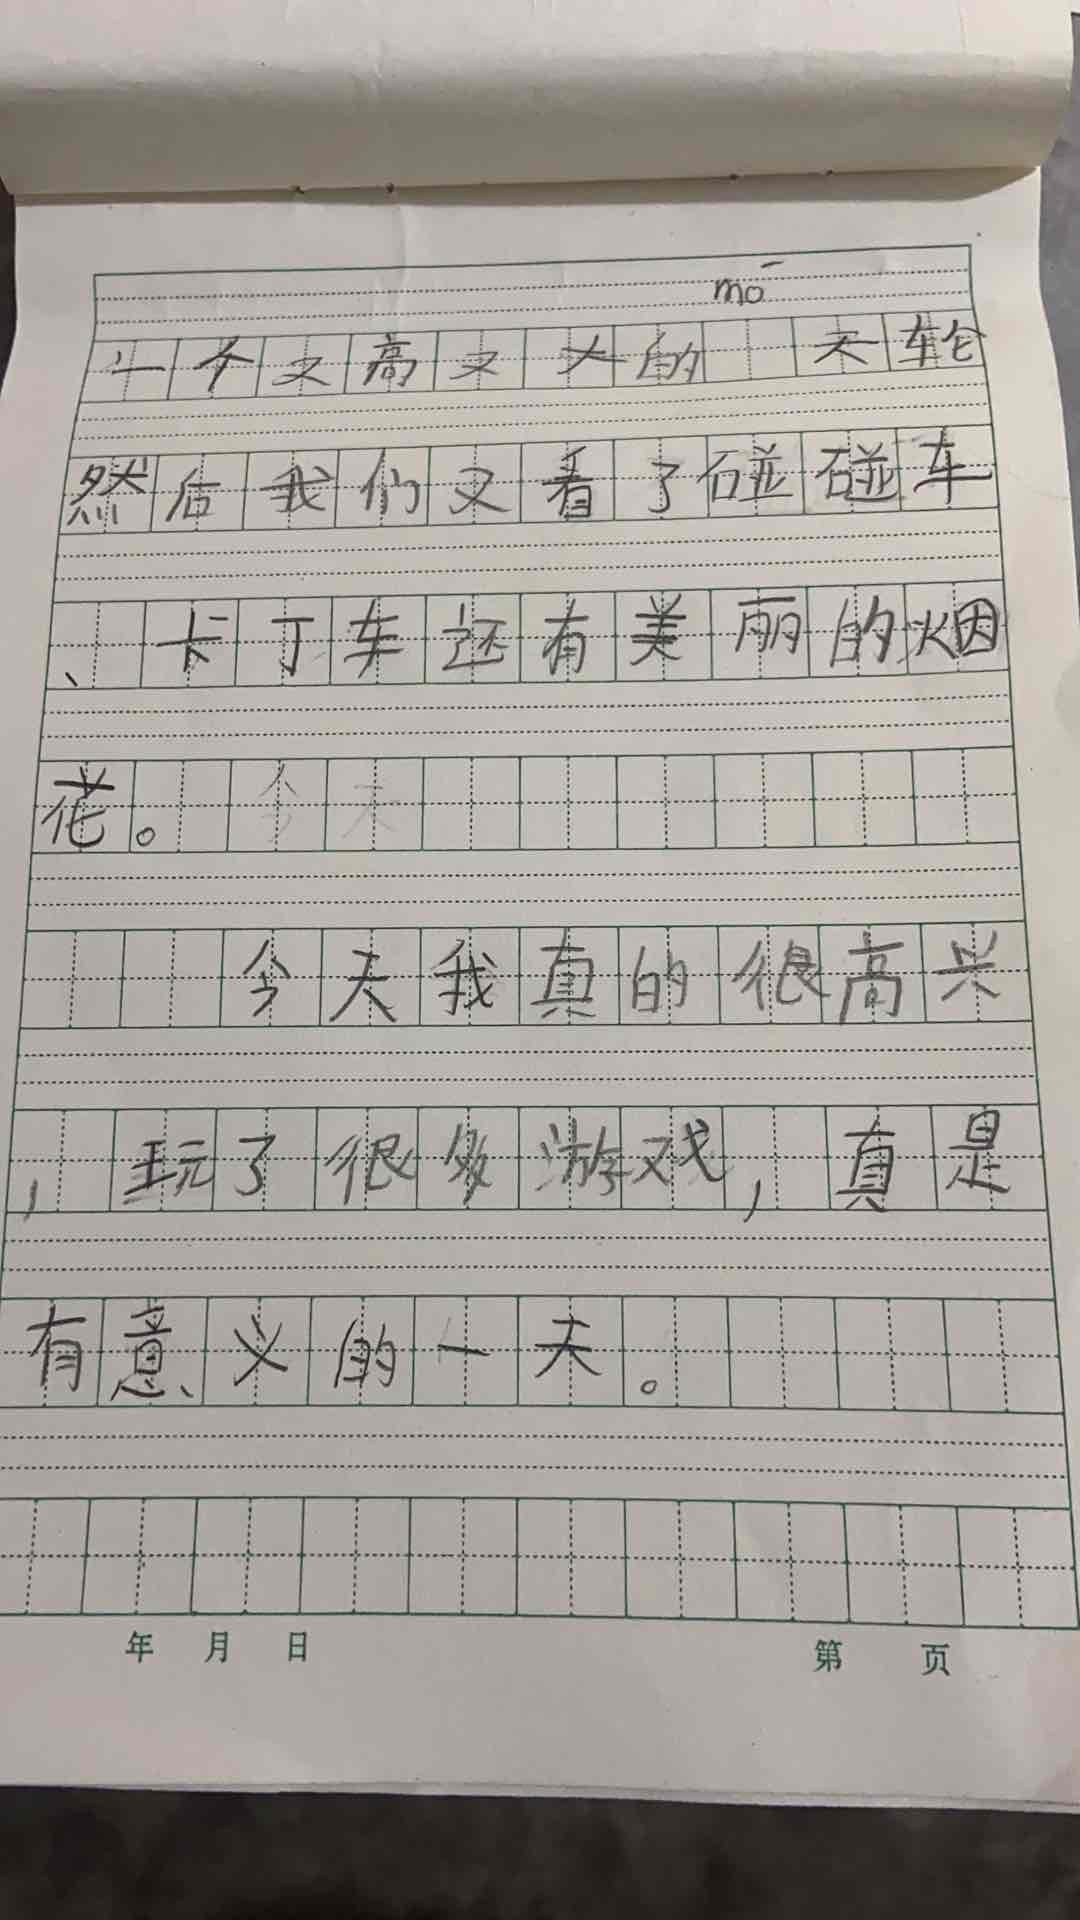 mō
一个又高又大的 天轮
然后我们又看了碰碰车
、卡丁车还有美丽的烟
花。今天
今天我真的很高兴
,玩了很多游戏,真是
有意义的一天。
年 月 日 第 页